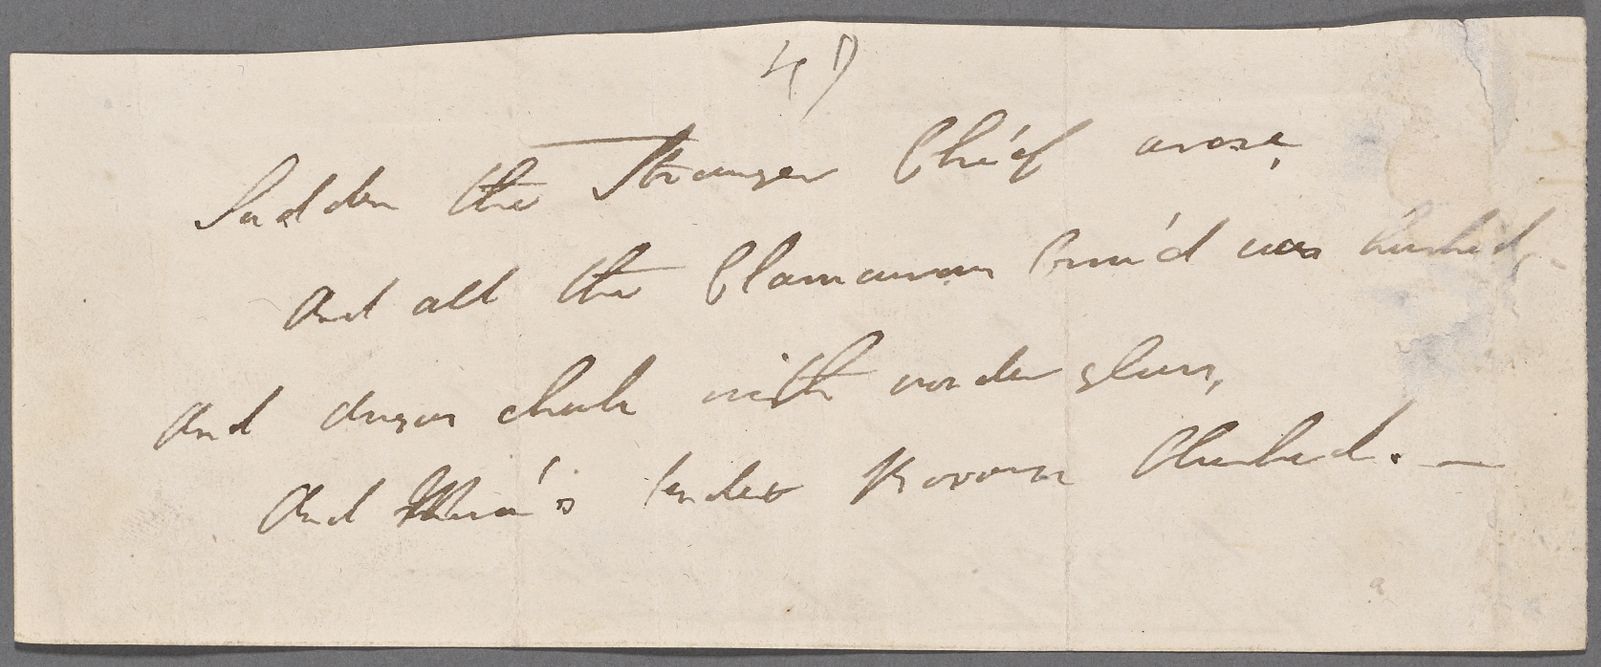 Sudden the Stranger Chief arose,
And all the Clamorous Crow'd was hush'd,
And Angus cheek with wonder glows,
And Mora's tender Bosom blushed. —